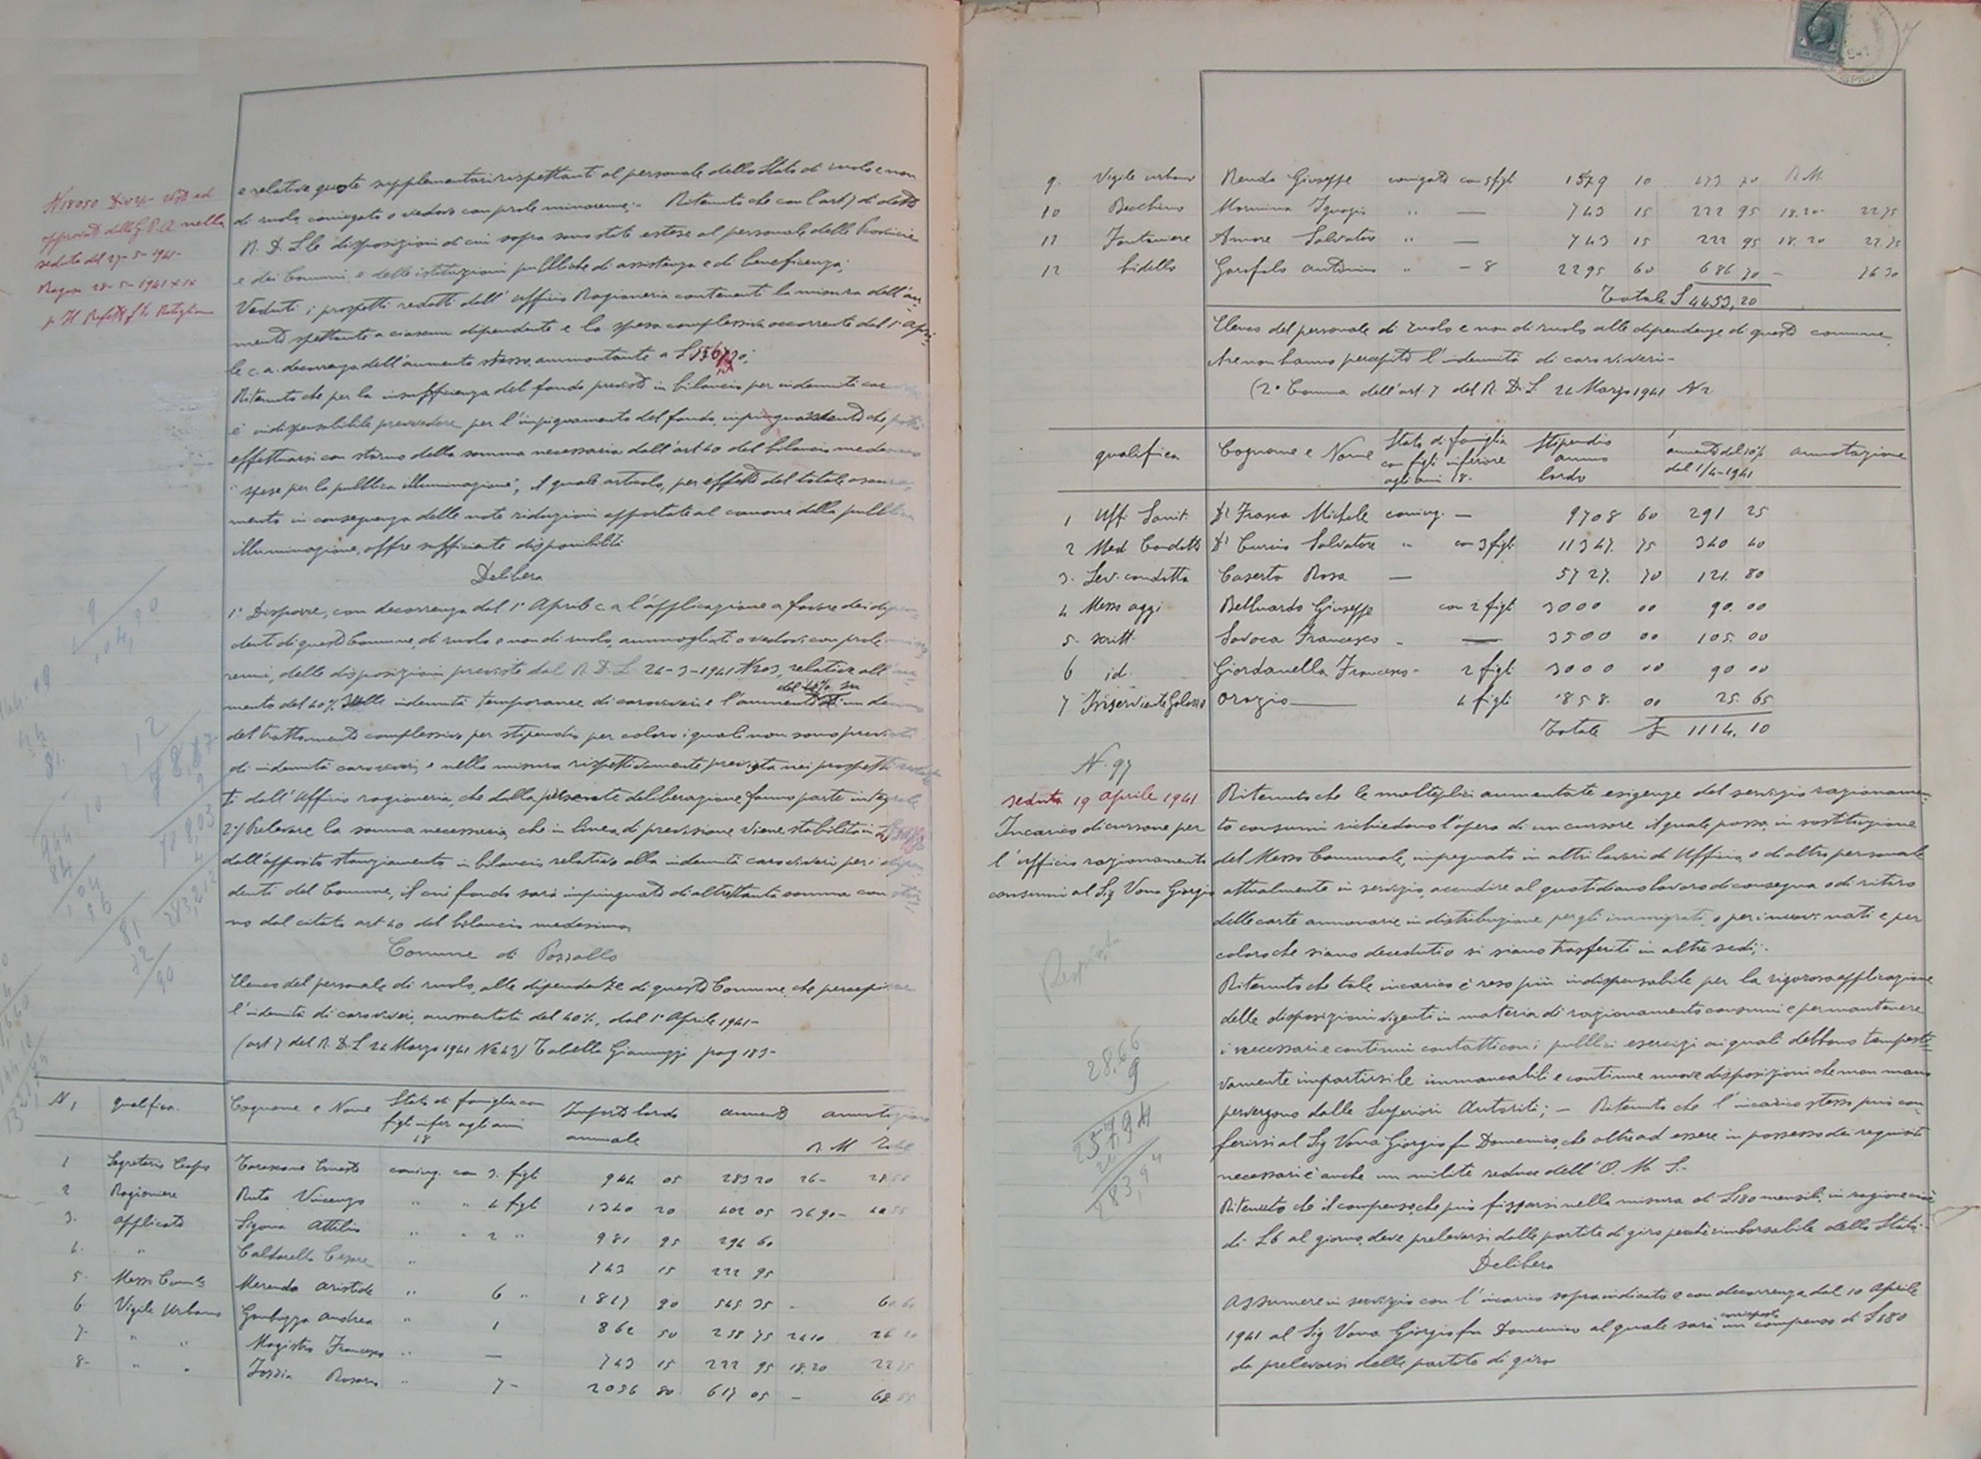 N 18050 Div 2ª - Visto ed
approvato dalla G P A nella
seduta del 27-5-1941-
Ragusa 28-5-1941 XIX
p Il Prefetto
e relative quote supplementari rispettanti al personale dello Stato di ruolo e non
di ruolo, coniugato o vedovo con prole minorenne;- Ritenuto che con l'art 7 di detto
R. D. L le disposizioni di cui sopra sono state estese al personale delle Provincie
e dei Comuni e delle istituzioni pubbliche di assistenza e di beneficenza;
Veduti i prospetti redatti dall'ufficio Ragioneria contenenti la misura dell'au-
mento spettante a ciascun dipendente e la spesa complessiva occorrente dal 1° apri-
le c.a. decorrenza dell'aumento stesso, ammontante a
Ritenuto che per la insufficienza del fondo previsto in bilancio per indennità
è indispensabile provvedere per l'impinguamento del fondo, che
effettuarsi con storno della somma necessaria dall'art 40 del bilancio medesimo
"spese per la pubblica illuminazione", il quale articolo, per effetto del totale
mento in conseguenza delle note riduzioni apportate al canone della pubblica
illuminazione, offre sufficiente disponibilità
Delibera
1° Disporre, con decorrenza dal 1° Aprile c.a l'applicazione a favore dei dipen-
denti di questo Comune, di ruolo e non di ruolo, ammogliati o vedovi con prole
renni, delle disposizioni previste dal R. D. L 24-3-1941 N 203, relative all'
del 10% su
mento del 40% sulle indennità temporanee di caroviveri e l'aumento
del trattamento complessivo per stipendio per coloro i quali non sono
di indennità caroviveri, e nella misura rispettivamente prevista nei prospetti
ti dall'Ufficio ragioneria, che dalla presente deliberazione fanno parte integrale
2°) Prelevare la somma necessaria, che in linea di previsione viene stabilita in
dall'apposito stanziamento in bilancio relativo alla indennità caroviveri per i dipen-
denti del Comune, il cui fondo sarà impinguato di altrettanta somma con stor-
no dal citato art 40 del bilancio medesimo
Comune di Pozzallo
Elenco del personale di ruolo, alle dipendenze di questo Comune, che percepisce
l'indennità di caroviveri, aumentata del 40%, dal 1° Aprile 1941-
(art 7 del R. D. L 24 Marzo 1941 N 203) Tabella Giannuzzi pag 183-
N, qualifica Cognome e Nome Stato di famiglia con figli infer agli anni 18 Importo lordo annuale aumento annotazioni
R. M Total
1 Segretario Capo Tarascone Ernesto coniug. con 3. figli 944 05 283 20 26-
2 Ragioniere Ruta Vincenzo " " 4 figli 1340 20 402 05 36 90-
3. applicato Sigona Attilio " " 2 " 981 95 294 60
4. " Caldarella Cesare " 743 15 222 95
5. Messo Com.le Merenda Aristide " 6 " 1817 90 545 35 -
6. Vigile Urbano Gambuzza Andrea " 1 862 50 258 75 24 10
7- " " Magistro Francesco " — 743 15 222 95 18.20
8- " " Rosario " 7- 2056 80 617 05 -
9. Vigile urbano Renda Giuseppe coniugato con 5 figli 1579 10 473 70 R.M.
10 Becchino Mormina Ignazio " — 743 15 222 95 18.20- 22 75
11 Fontaniere Amore Salvatore " — 743 15 222 95 18.20 22 75
12 bidello Garofalo Antonino " - 8 2295 60 686 70 - 76 30
Totale £ 4453,20
Elenco del personale di ruolo e non di ruolo alle dipendenze di questo comune,
che non hanno percepito l'indennità di caroviveri-
(2° Comma dell'art. 7 del R. D. L 24 Marzo 1941 N 2
qualifica Cognome e Nome Stato di famiglia con figli inferiore agli anni 18- Stipendio annuo lordo aumento del 10% dal 1/4-1941 annotazione
1 Uff. Sanit. Dr Frasca Michele coniug. — 9708 60 291 25
2 Med Condotto Dr Curcio Salvatore " con 3 figli 11347. 75 340 40
3. Lev. condotta Caserta Rosa — 5727. 70 121. 80
4 Messo aggi Belluardo Giuseppe con 2 figli 3000 00 90. 00
5- scritt. Savoca Francesco - — 3500 00 105. 00
6 id. Giordanella Francesco- 2 figli 3000 00 90 00
7 Inserviente Galasso Orazio — 4 figli 858. 00 25. 65
Totale £ 1114. 10
N. 97
Seduta 19 Aprile 1941
Incarico di cursore per
l'ufficio razionamento
consumi al Sig Vona Giorgio
Ritenuto che le molteplici aumentate esigenze del servizio razionamen-
to consumi richiedono l'opera di un cursore il quale possa, in sostituzione
del Messo Comunale, impegnato in altri lavori di Ufficio, o di altro personale
attualmente in servizio, accudire al quotidiano lavoro di consegna o di ritiro
delle carte annonarie in distribuzione per gli immigrati, o per i nuovi nati e per
coloro che siano deceduti o si siano trasferiti in altre sedi;-
Ritenuto che tale incarico è reso più indispensabile per la rigorosa applicazione
delle disposizioni vigenti in materia di razionamento consumi e per mantenere
i necessari e continui contatti con i pubblici esercizi ai quali debbono tempesti-
vamente impartirsi le immancabili e continue nuove disposizioni che man mano
pervengono dalle Superiori Autorità; - Ritenuto che l'incarico stesso può con-
ferirsi al Sig Vona Giorgio fu Domenico, che oltre ad essere in possesso dei requisiti
necessari è anche un milite reduce dell'O. M. S.-
Ritenuto che il compenso, che può fissarsi nella misura di £ 180 mensili, in ragione cioè
di £ 6 al giorno, deve prelevarsi dalle partite di giro perché rimborsabile dallo Stato-
Delibera
Assumere in servizio con l'incarico sopraindicato e con decorrenza dal 10 Aprile
corrisposto
1941 al Sig Vona Giorgio fu Domenico al quale sarà un compenso di £ 180
da prelevarsi dalle partite di giro
28,66
9